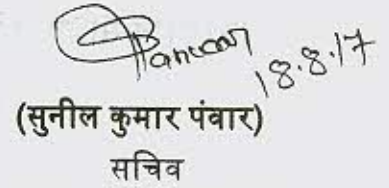 Panwar
18.8.17
(सुनील कुमार पंवार)
सचिव